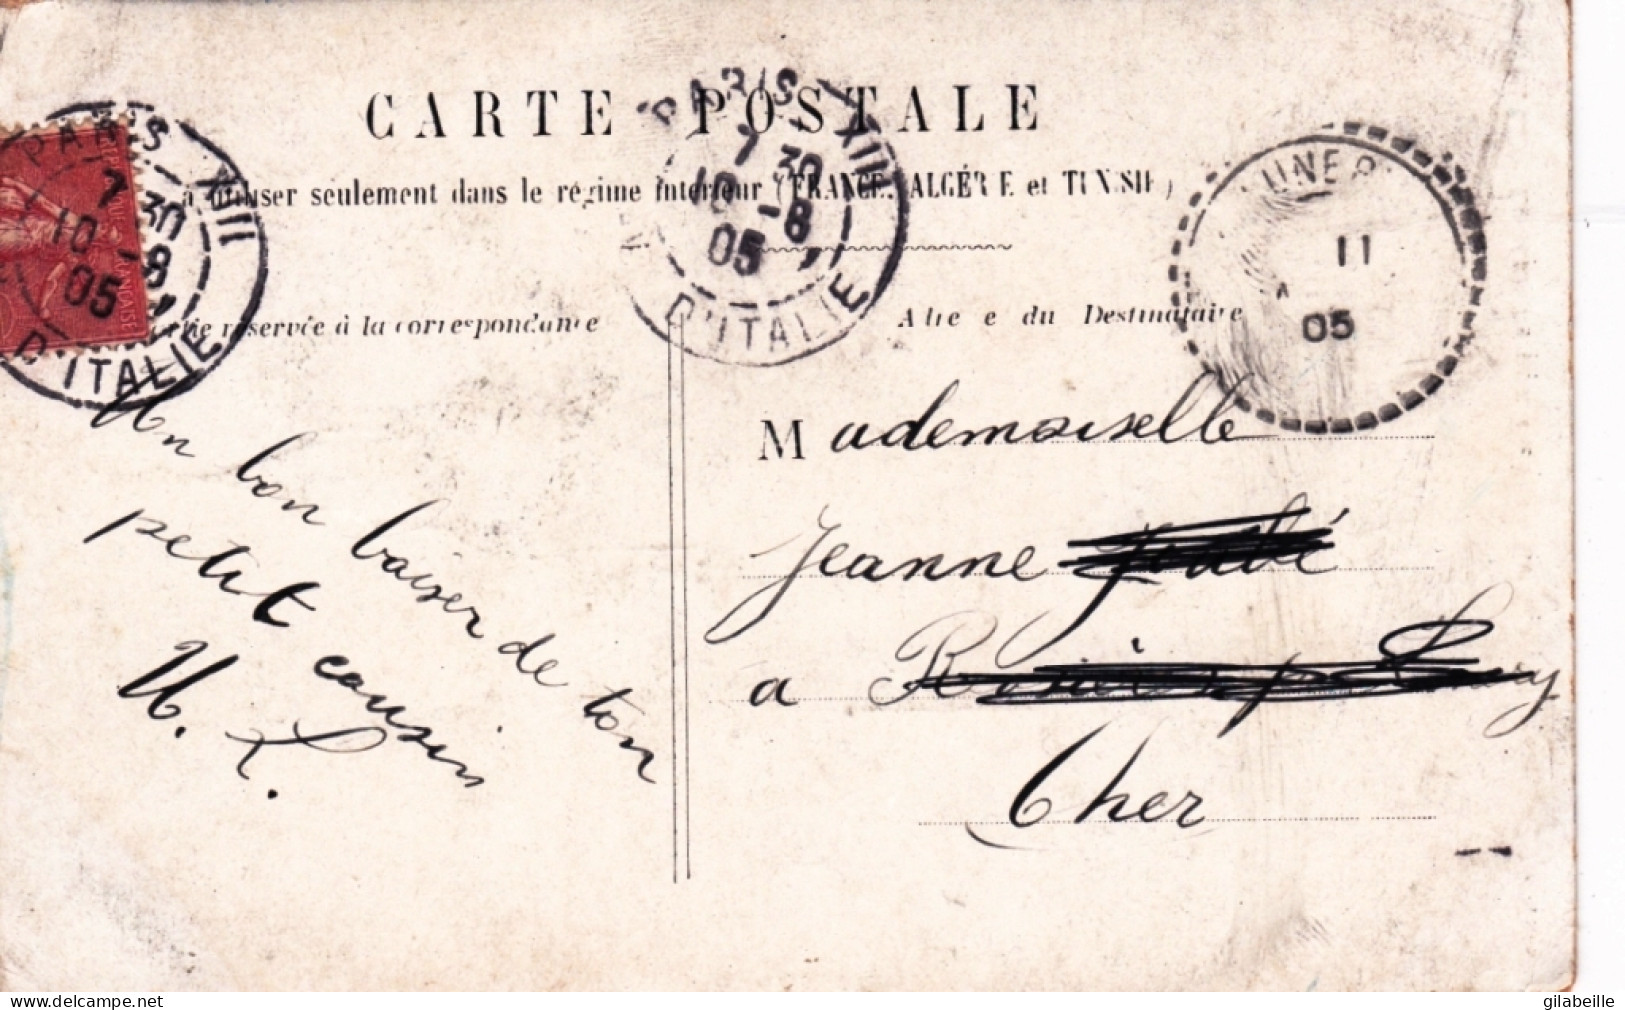 CARTE POSTALE
à utiliser seulement dans le régime intérieur (FRANCE, ALGÉRIE et TUNISIE)
Partie réservée à la correspondance
Adresse du Destinataire
PARIS XIII
7 30
10 -8
05
D'ITALIE
PARIS XIII
7 30
10 -8
05
D'ITALIE
11
05
Un bon baiser de ton
petit cousin
Mademoiselle
Jeanne
a
Cher
gilabeille